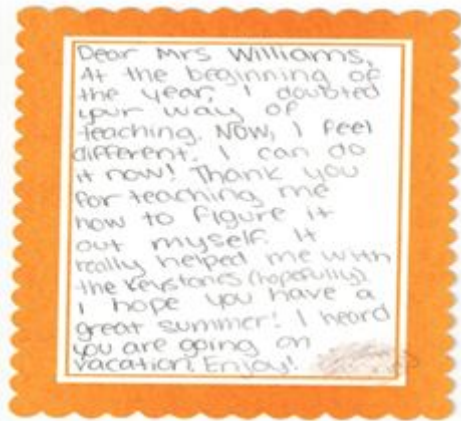 Dear Mrs Williams,
At the beginning of
the year, I doubted
your way of
teaching. Now, I feel
different. I can do
it now! Thank you
for teaching me
how to figure it
out myself. It
really helped me with
the Keystones (hopefully).
I hope you have a
great summer! I heard
you are going on
vacation. Enjoy!